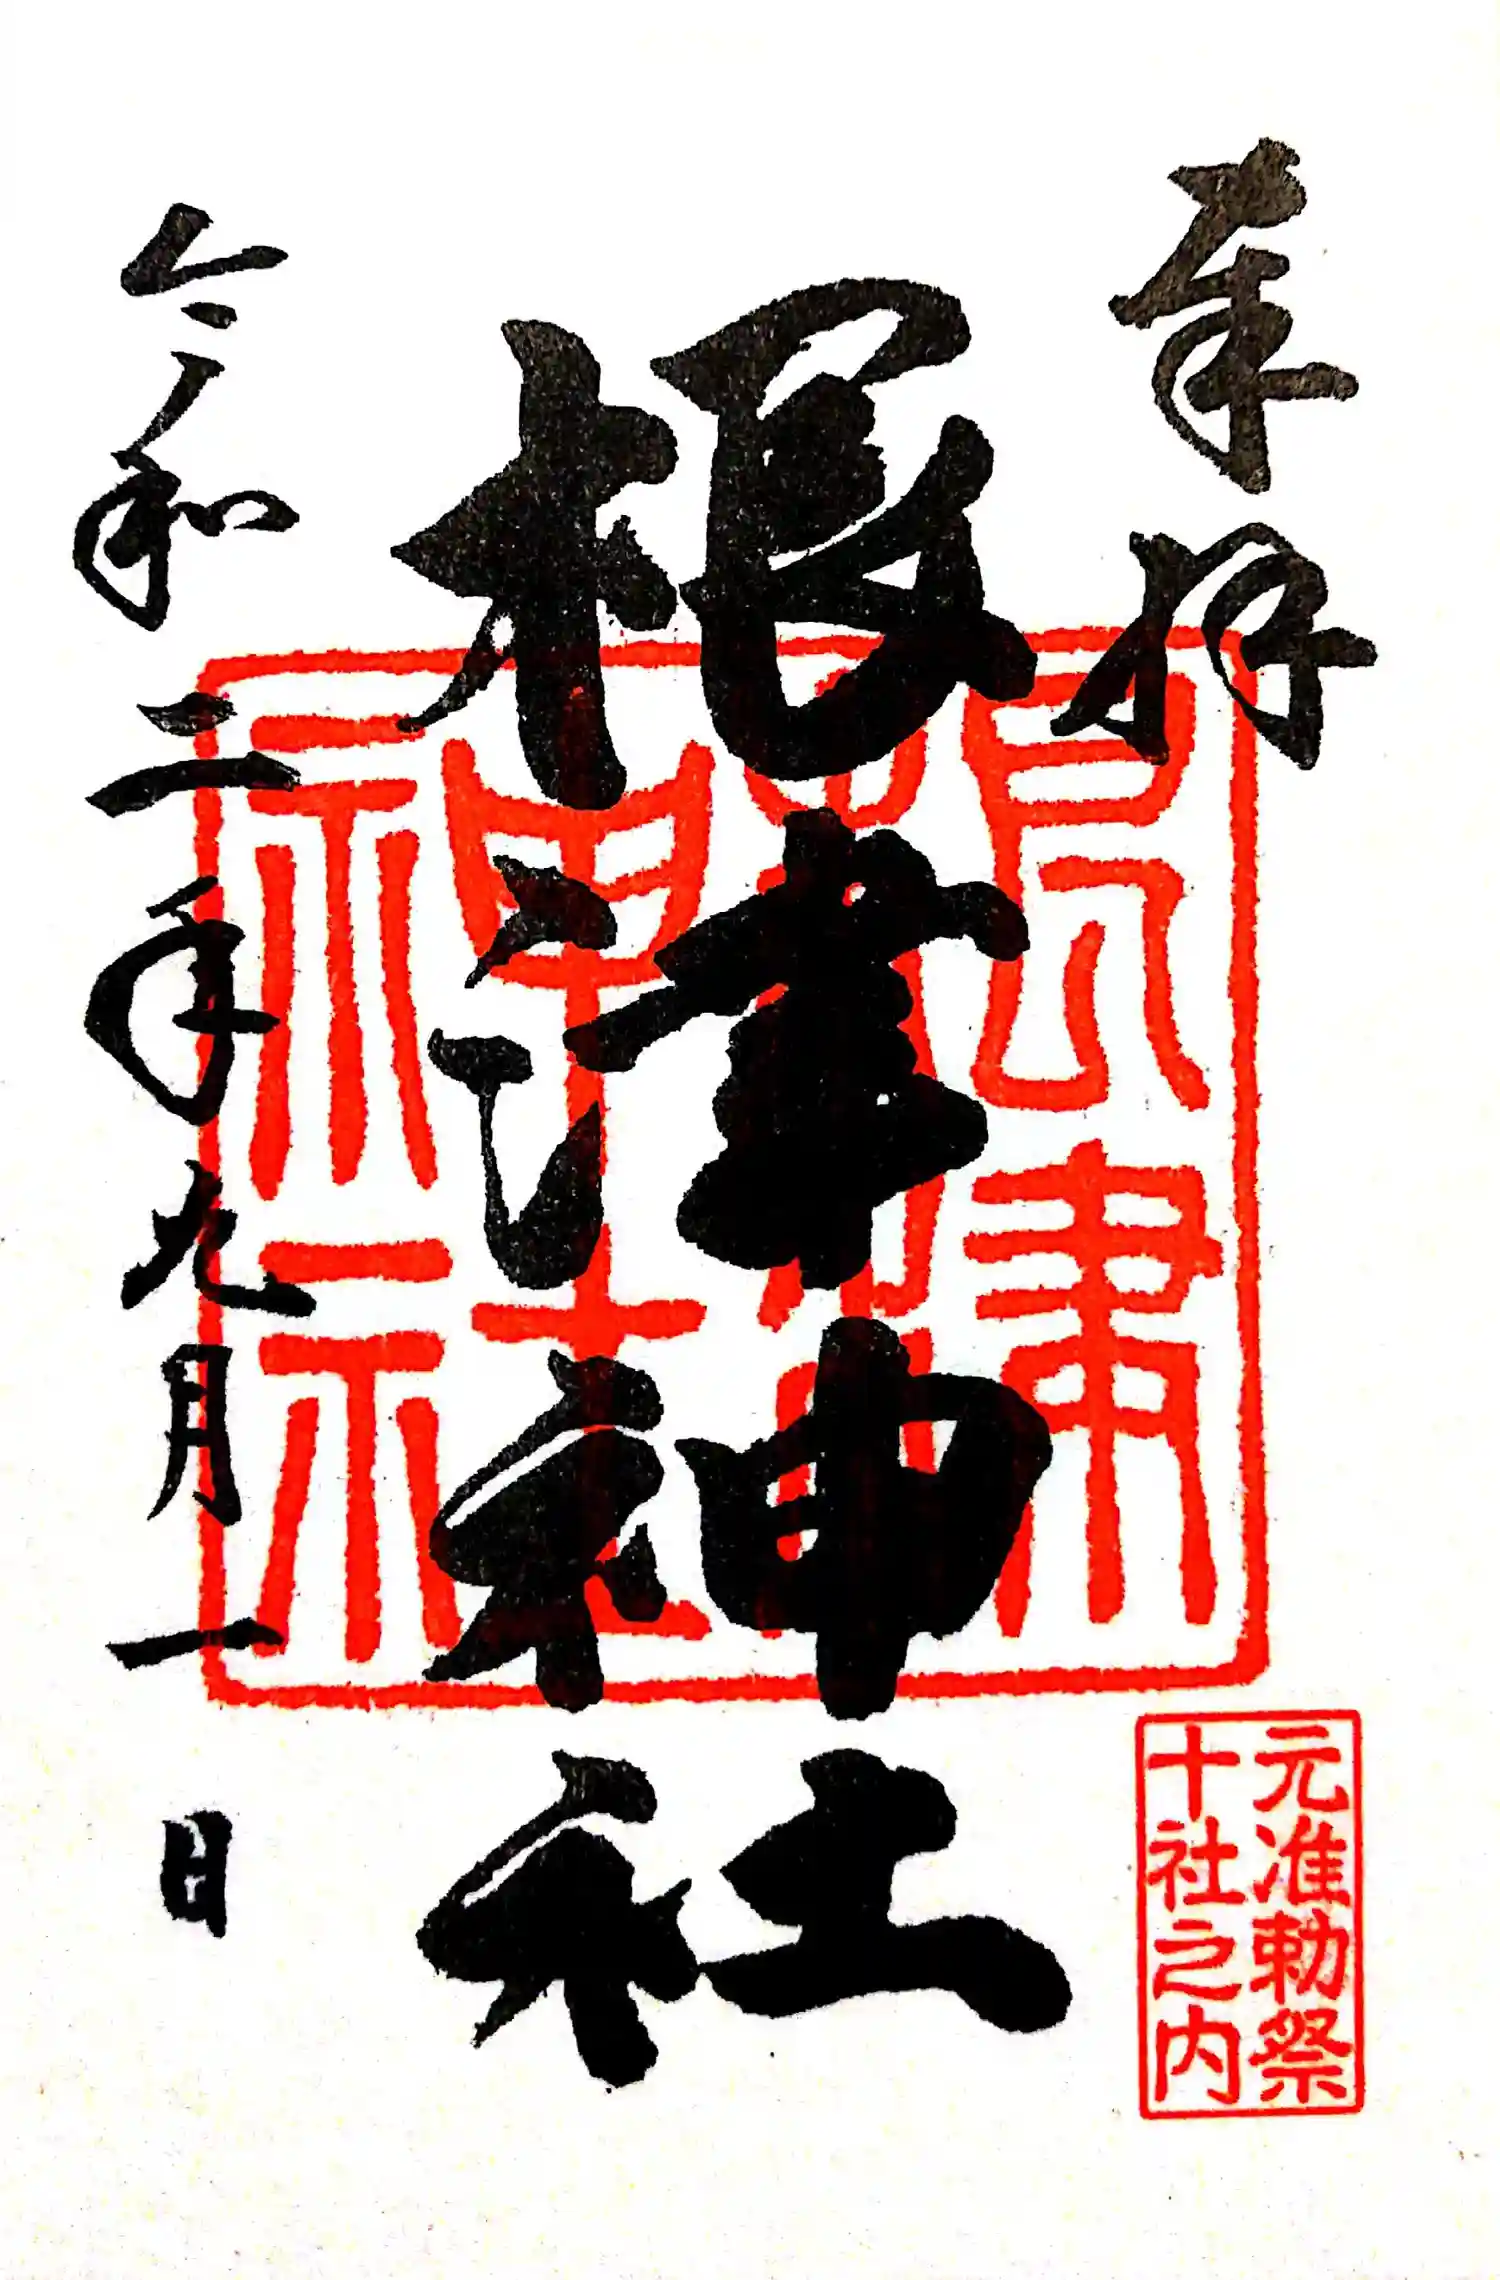 奉拝
根津神社
令和二年九月一日
根津
神社
元准勅祭
十社之内